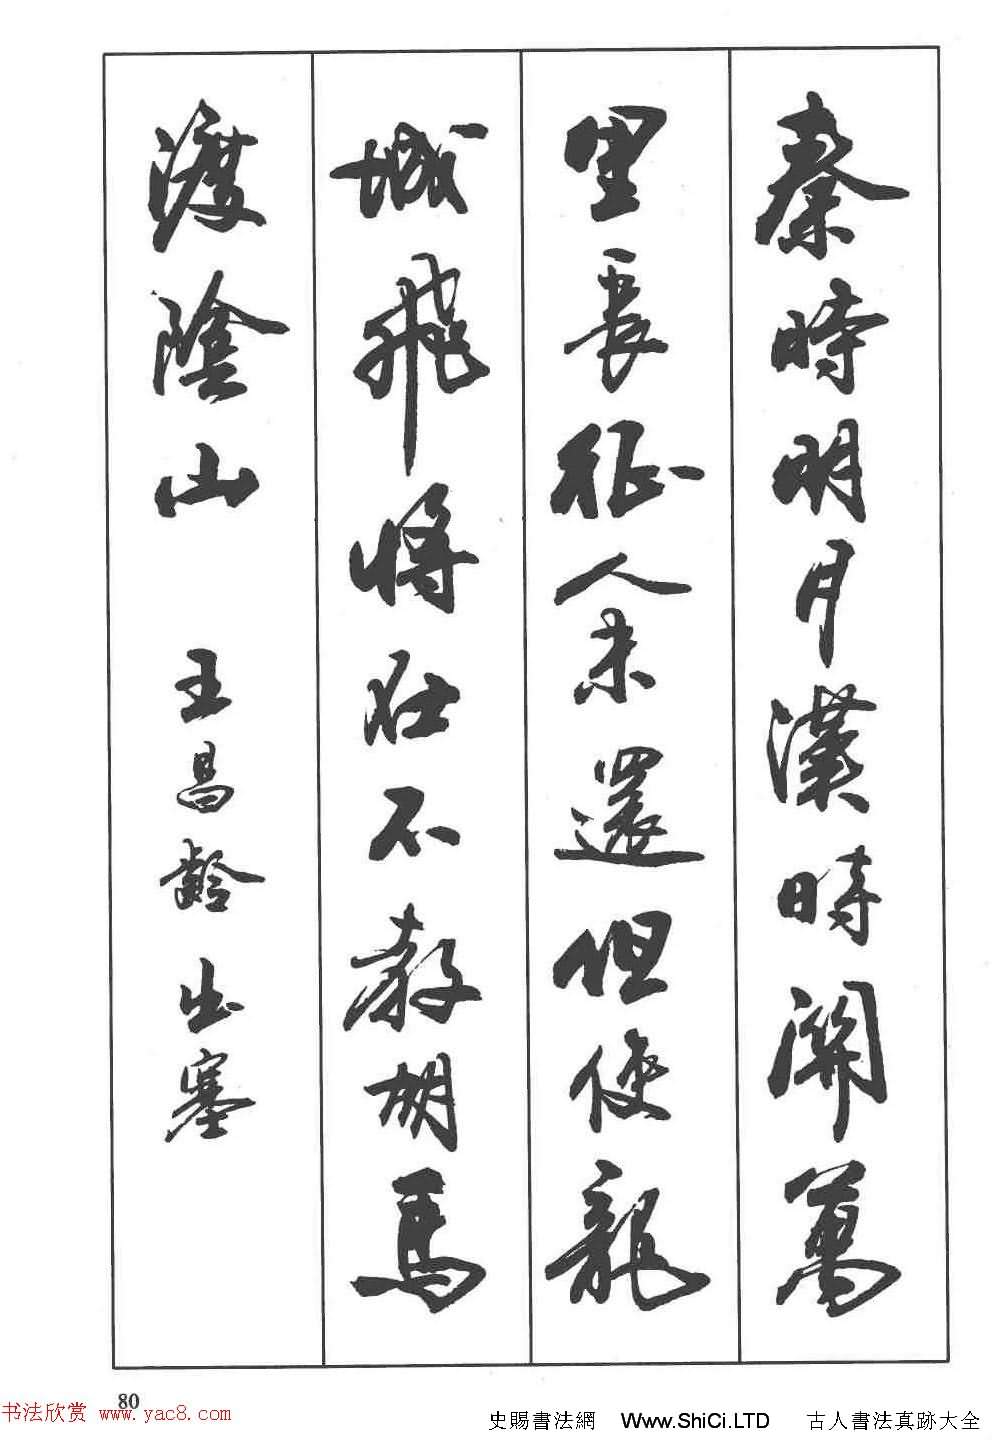 秦時明月漢時關萬
里長征人未還但使龍
城飛將在不教胡馬
渡陰山 王昌齡出塞
80
书法欣赏 www.yac8.com
史賜書法網 Www.ShiCi.LTD 古人書法真跡大全